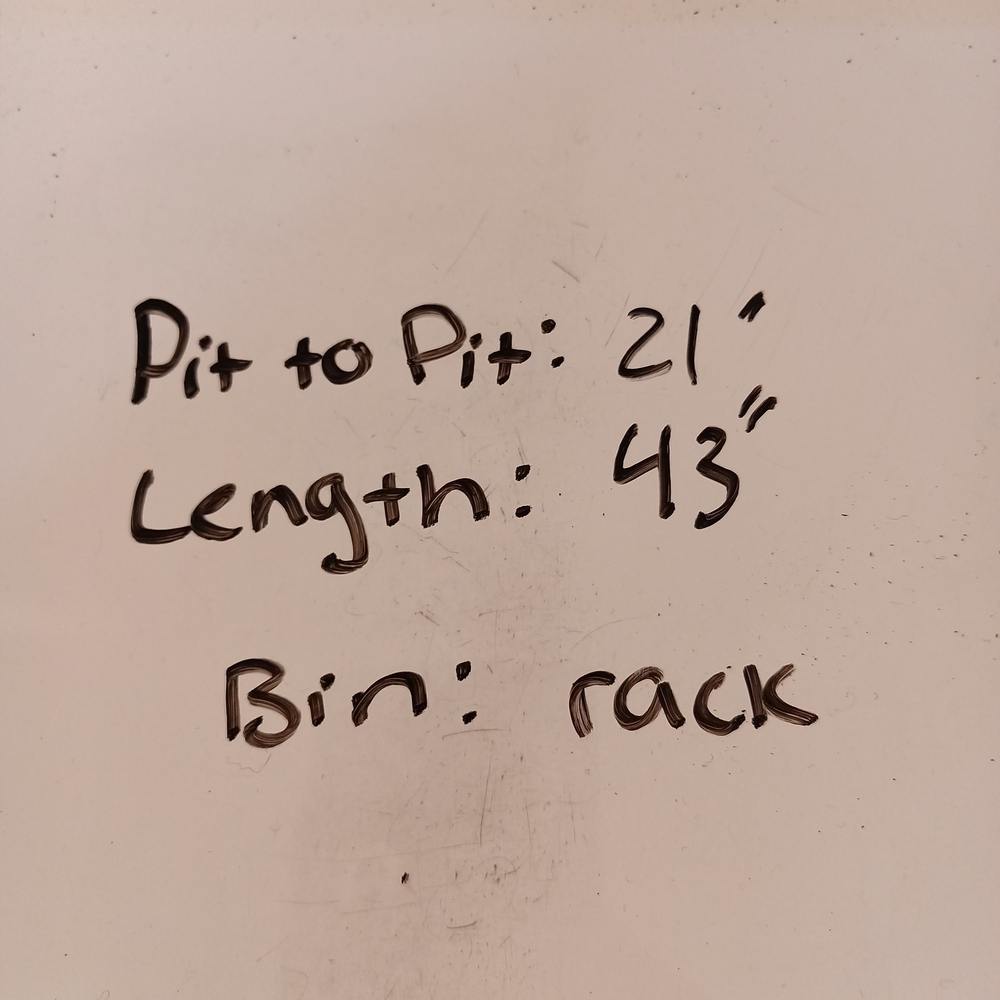 Pit to Pit: 21"
Length: 43"
Bin: rack